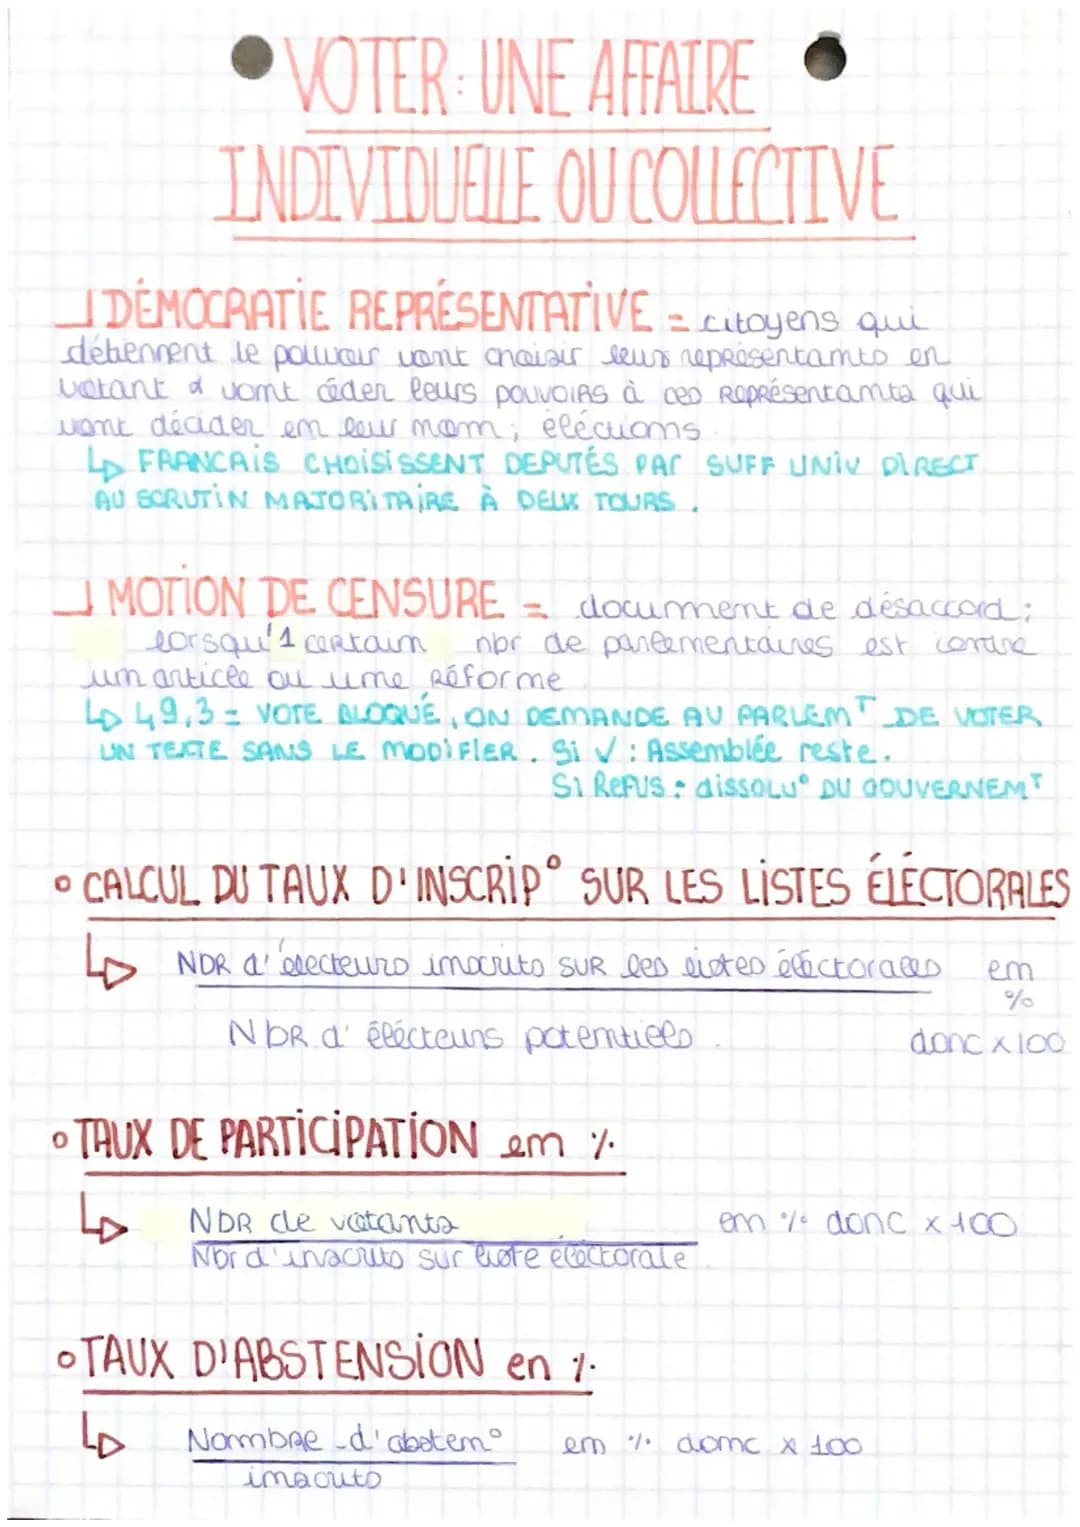 VOTER: UNE AFFAIRE
INDIVIDUELLE OU COLLECTIVE
DÉMOCRATIE REPRÉSENTATIVE = citoyens qui
détiennent le pouvoir vont choisir leurs représentants en
votant & vont céder leurs pouvoirs à ces représentants qui
vont décider en leur nom; éléctions.
↳ FRANCAIS CHOISISSENT DEPUTÉS PAR SUFF UNIV DIRECT
AU SCRUTIN MAJORITAIRE À DEUX TOURS.
MOTION DE CENSURE = document de désaccord;
lorsqu'1 certain nbr de parlementaires est contre
un article ou une Réforme
↳ 49,3 = VOTE BLOQUÉ, ON DEMANDE AU PARLEMT DE VOTER
UN TEXTE SANS LE MODIFIER. Si √ : Assemblée reste.
Si REFUS : dissolu° DU GOUVERNEMT
• CALCUL DU TAUX D'INSCRIP° SUR LES LISTES ÉLÉCTORALES
↳ NBR d'électeurs inscrits SUR les listes éléctorales en
%
NBR d'élécteurs potentiels. donc x100
• TAUX DE PARTICIPATION en %
↳ NBR de votants en % donc x 100
Nbr d'inscrits sur liste éléctorale
• TAUX D'ABSTENSION en %
↳ Nombre d'absten° en % donc x 100
inscrits